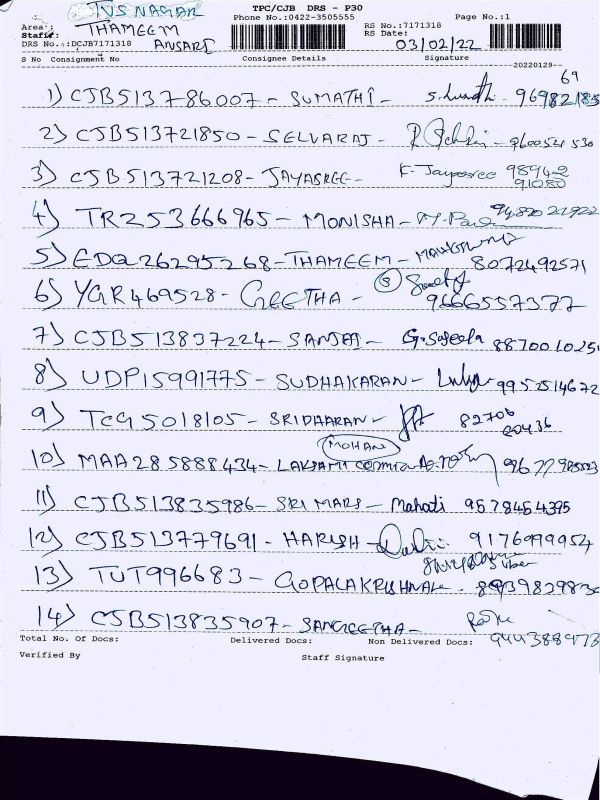 TPC/CJB DRS - P30
TVS NAGAR
Phone No.:0422-3505555
Page No.:1
Area :
THAMEEM
RS No.:7171318
Staff :
RS Date:
DRS No.:DCJB7171318
ANSARI
03/02/22
S No Consignment No
Consignee Details
Signature
20220129
1) CJB513786007 - SUMATHI -
2) CJB513721850 - SELVARAJ - 9600521530
3) CJB513721208 - JAYASREE - K. Jayasree 98942
91080
4) TR253666965 - MONISHA -
5) EDQ26295268 - THAMEEM - 8072492571
6) YGR469528 - GEETHA - 9666557377
7) CJB513837224 - SANJAI - 887001025
8) UDP15991775 - SUDHAKARAN - 9952514672
9) TCG5018105 - SRIDHARAN - 82706
20436
MOHAN
10) MAA285888434 - LAKSAMI
11) CJB513835986 - SRI MARS - Mahadi 9578454395
12) CJB513779691 - HARISH - 9176999954
13) TUT996683 - GOPALAKRISHNAN -
14) CJB513835907 - SANGEETHA -
9443388973
Total No. Of Docs:
Delivered Docs:
Non Delivered Docs:
Verified By
Staff Signature